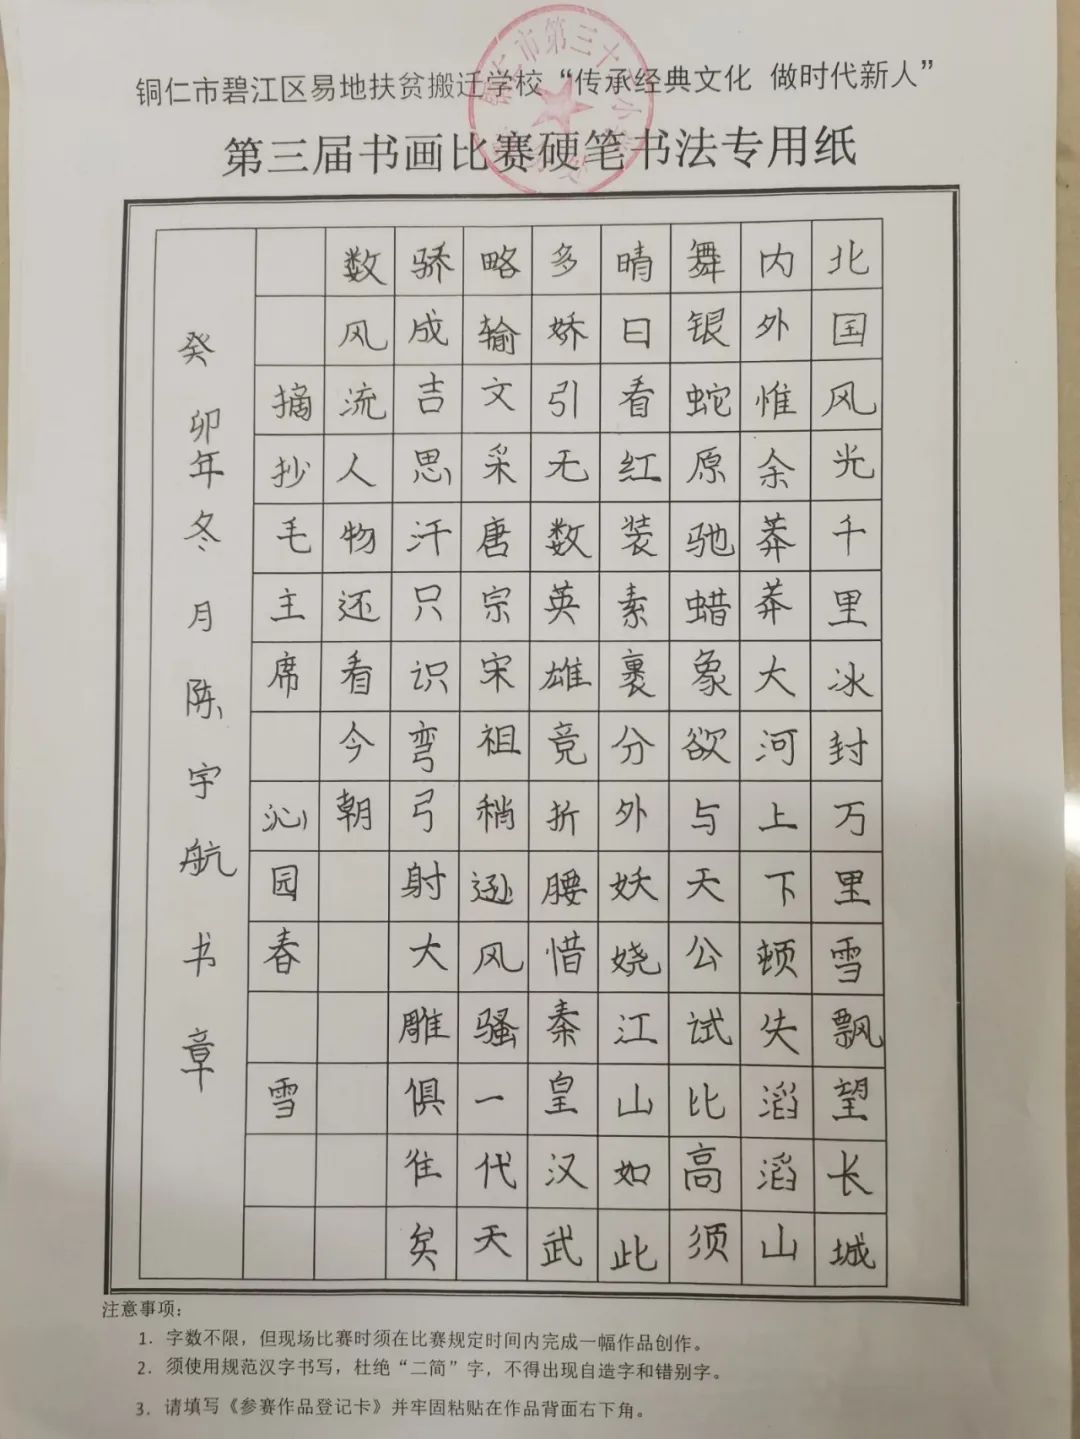 铜仁市碧江区易地扶贫搬迁学校“传承经典文化 做时代新人”
第三届书画比赛硬笔书法专用纸
北国风光千里冰封万里雪飘望长城
内外惟余莽莽大河上下顿失滔滔山
舞银蛇原驰蜡象欲与天公试比高须
晴日看红装素裹分外妖娆江山如此
多娇引无数英雄竞折腰惜秦皇汉武
略输文采唐宗宋祖稍逊风骚一代天
骄成吉思汗只识弯弓射大雕俱往矣
数风流人物还看今朝
摘抄毛主席 沁园春 雪
癸卯年冬月陈宇航书章
注意事项：
1. 字数不限，但现场比赛时须在比赛规定时间内完成一幅作品创作。
2. 须使用规范汉字书写，杜绝“二简”字，不得出现自造字和错别字。
3. 请填写《参赛作品登记卡》并牢固粘贴在作品背面右下角。